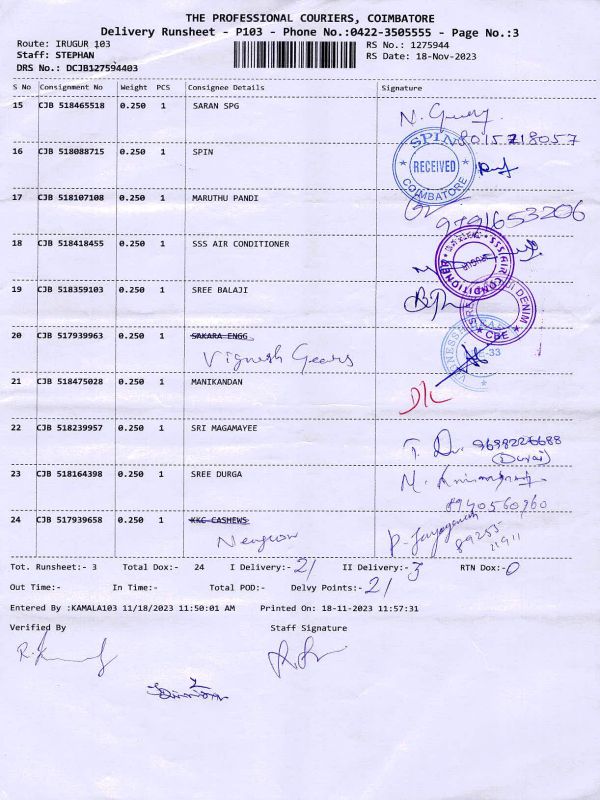 THE PROFESSIONAL COURIERS, COIMBATORE
Delivery Runsheet - P103 - Phone No.:0422-3505555 - Page No.:3
Route: IRUGUR 103 RS No.: 1275944
Staff: STEPHAN RS Date: 18-Nov-2023
DRS No.: DCJB127594403
S No Consignment No Weight PCS Consignee Details Signature
15 CJB 518465518 0.250 1 SARAN SPG
8015218057
16 CJB 518088715 0.250 1 SPIN
SPIN RECEIVED COIMBATORE
17 CJB 518107108 0.250 1 MARUTHU PANDI
9791653206
18 CJB 518418455 0.250 1 SSS AIR CONDITIONER
SSS AIR CONDITIONER
19 CJB 518359103 0.250 1 SREE BALAJI
DENIM
CBE
20 CJB 517939963 0.250 1 SAKARA ENGG
Vignesh Gears
21 CJB 518475028 0.250 1 MANIKANDAN
D/L
22 CJB 518239957 0.250 1 SRI MAGAMAYEE
(Durai)
23 CJB 518164398 0.250 1 SREE DURGA
8940560960
24 CJB 517939658 0.250 1 KKC CASHEWS
89255
11911
Tot. Runsheet:- 3 Total Dox:- 24 I Delivery:- 21 II Delivery:- 3 RTN Dox:- 0
Out Time:- In Time:- Total POD:- Delvy Points:- 21
Entered By :KAMALA103 11/18/2023 11:50:01 AM Printed On: 18-11-2023 11:57:31
Verified By Staff Signature